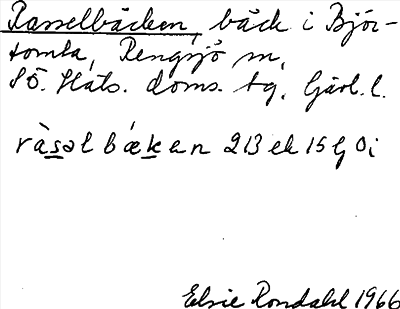 Rasselbäcken, bäck i Björ-
tomta, Rengsjö sn,
Sö. Häls. doms. tg. Gävl. l.
ràsəlbǽkan 213 ek 15G 0i
Elsie Rondahl 1966